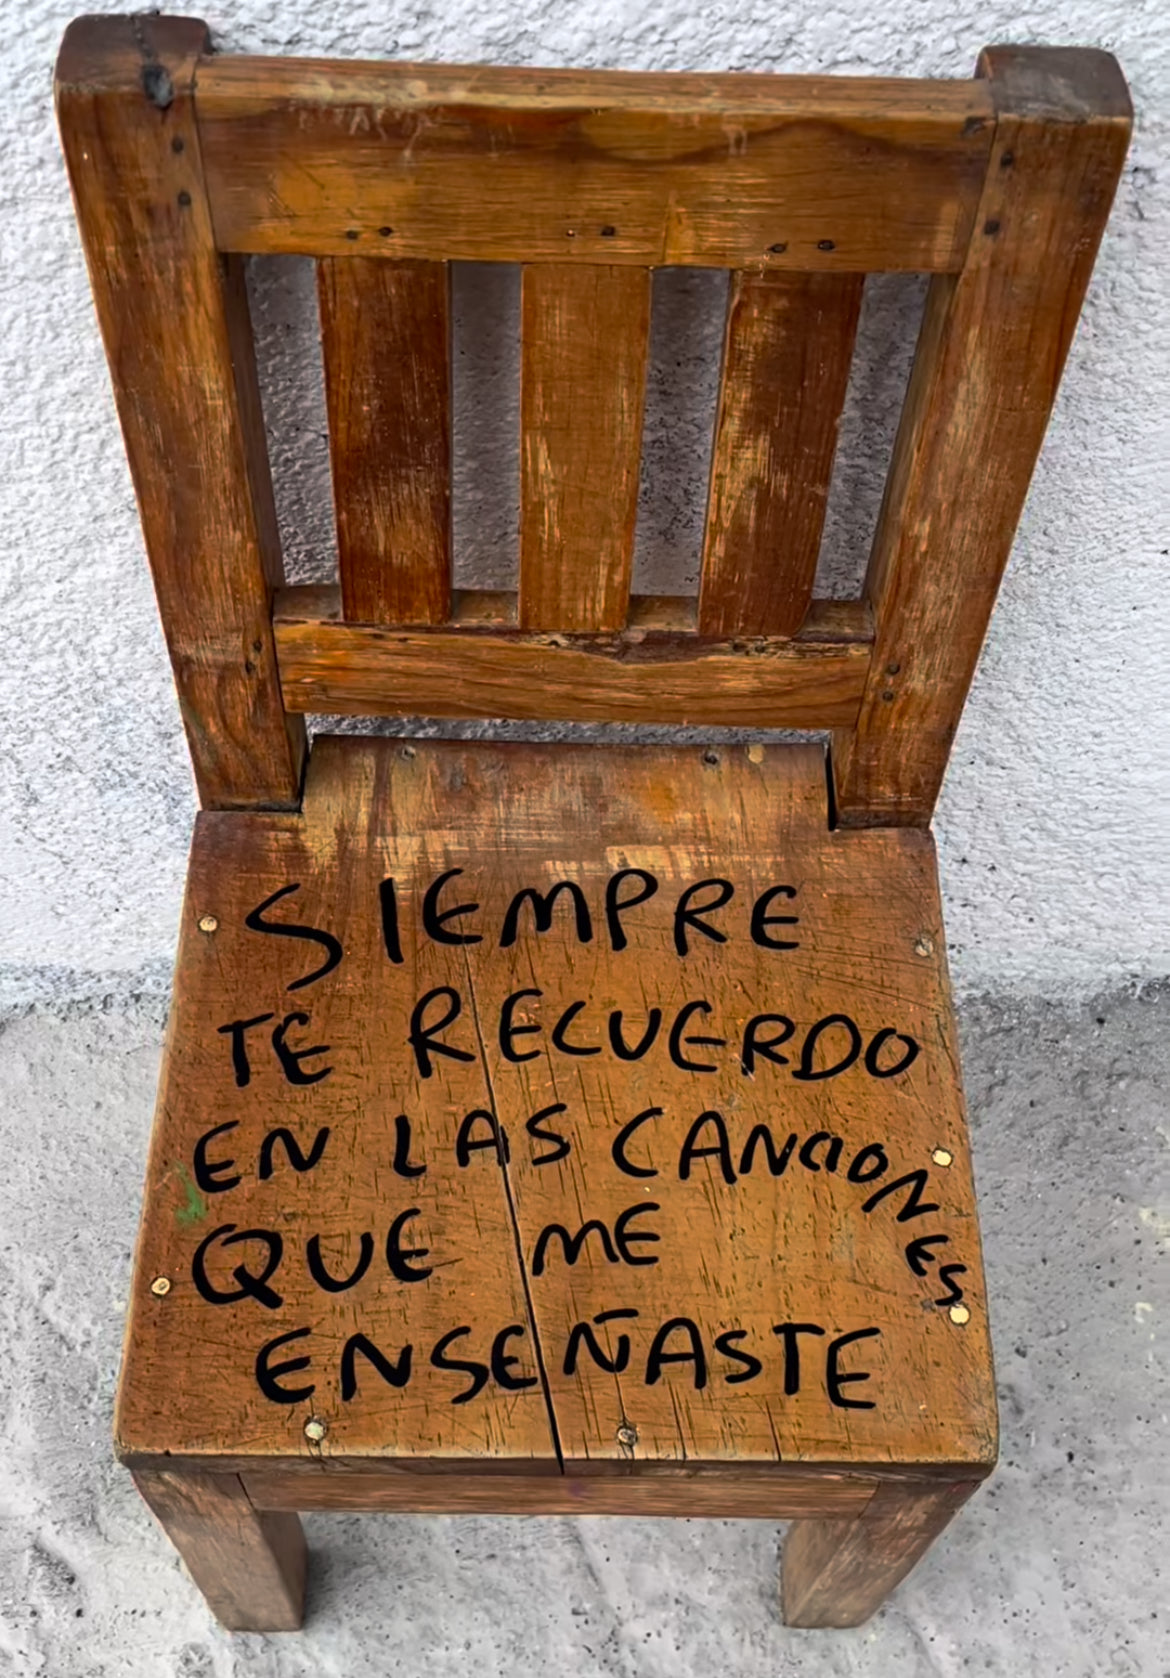 SIEMPRE
TE RECUERDO
EN LAS CANCIONES
QUE ME
ENSEÑASTE